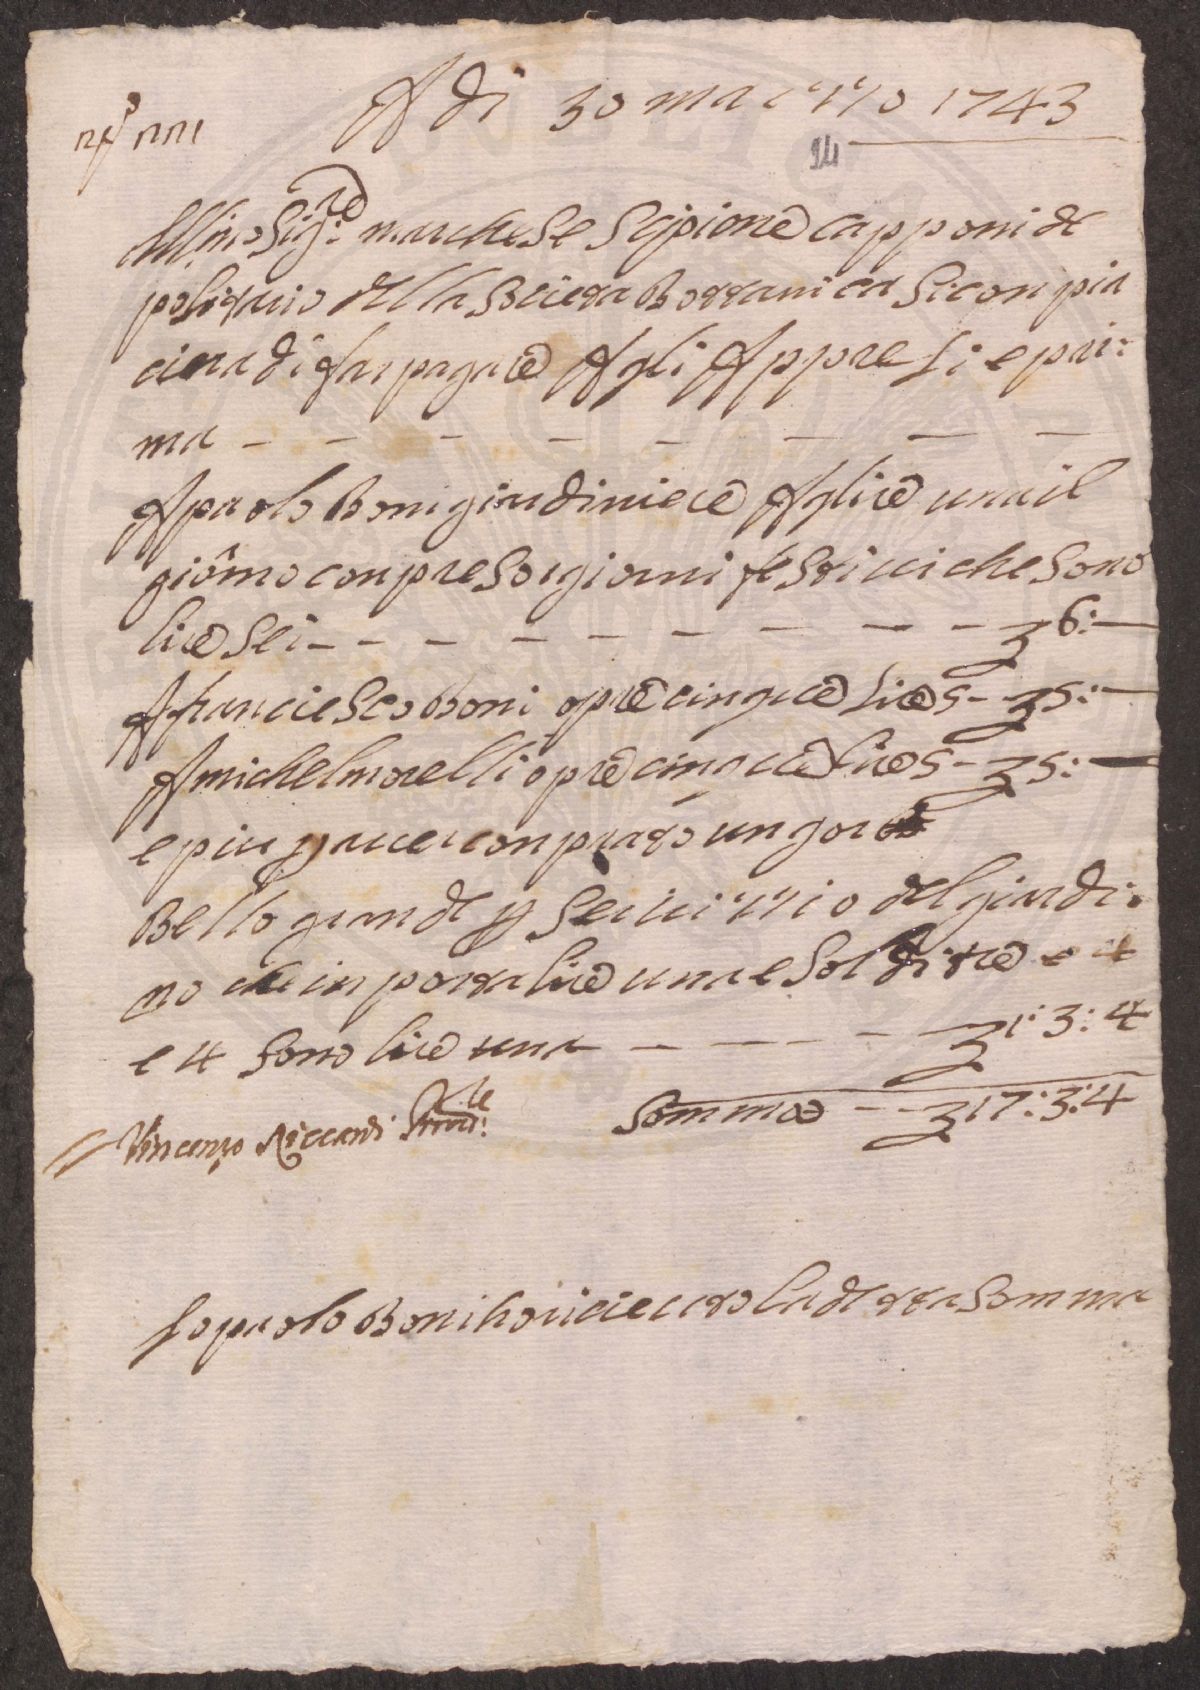 A di 30 marzzo 1743
14
Ill.mo Sig.re marchese Scipione Capponi de
positario della Societa Bottanica Si conpia
cera di far pagare Agli Appresi e pri:
ma
A paolo Boni giardiniere A lire una il
giorno conpreso i giorni festivi che sono
lire sei 6:
A franciesco Boni opre cinque lire 5 - 5:
A michel morelli opre cinque lire 5 - 5:
e piu per aver conprato un gor
Bello grande p servizzio del giardi:
no che inporta lire una e Soldi tre e 4
e 4 sono lire una 1: 3: 4
Somma 17: 3: 4
Vincenzo Riccardi
Io paolo Boni ho riceuto la detta Somma